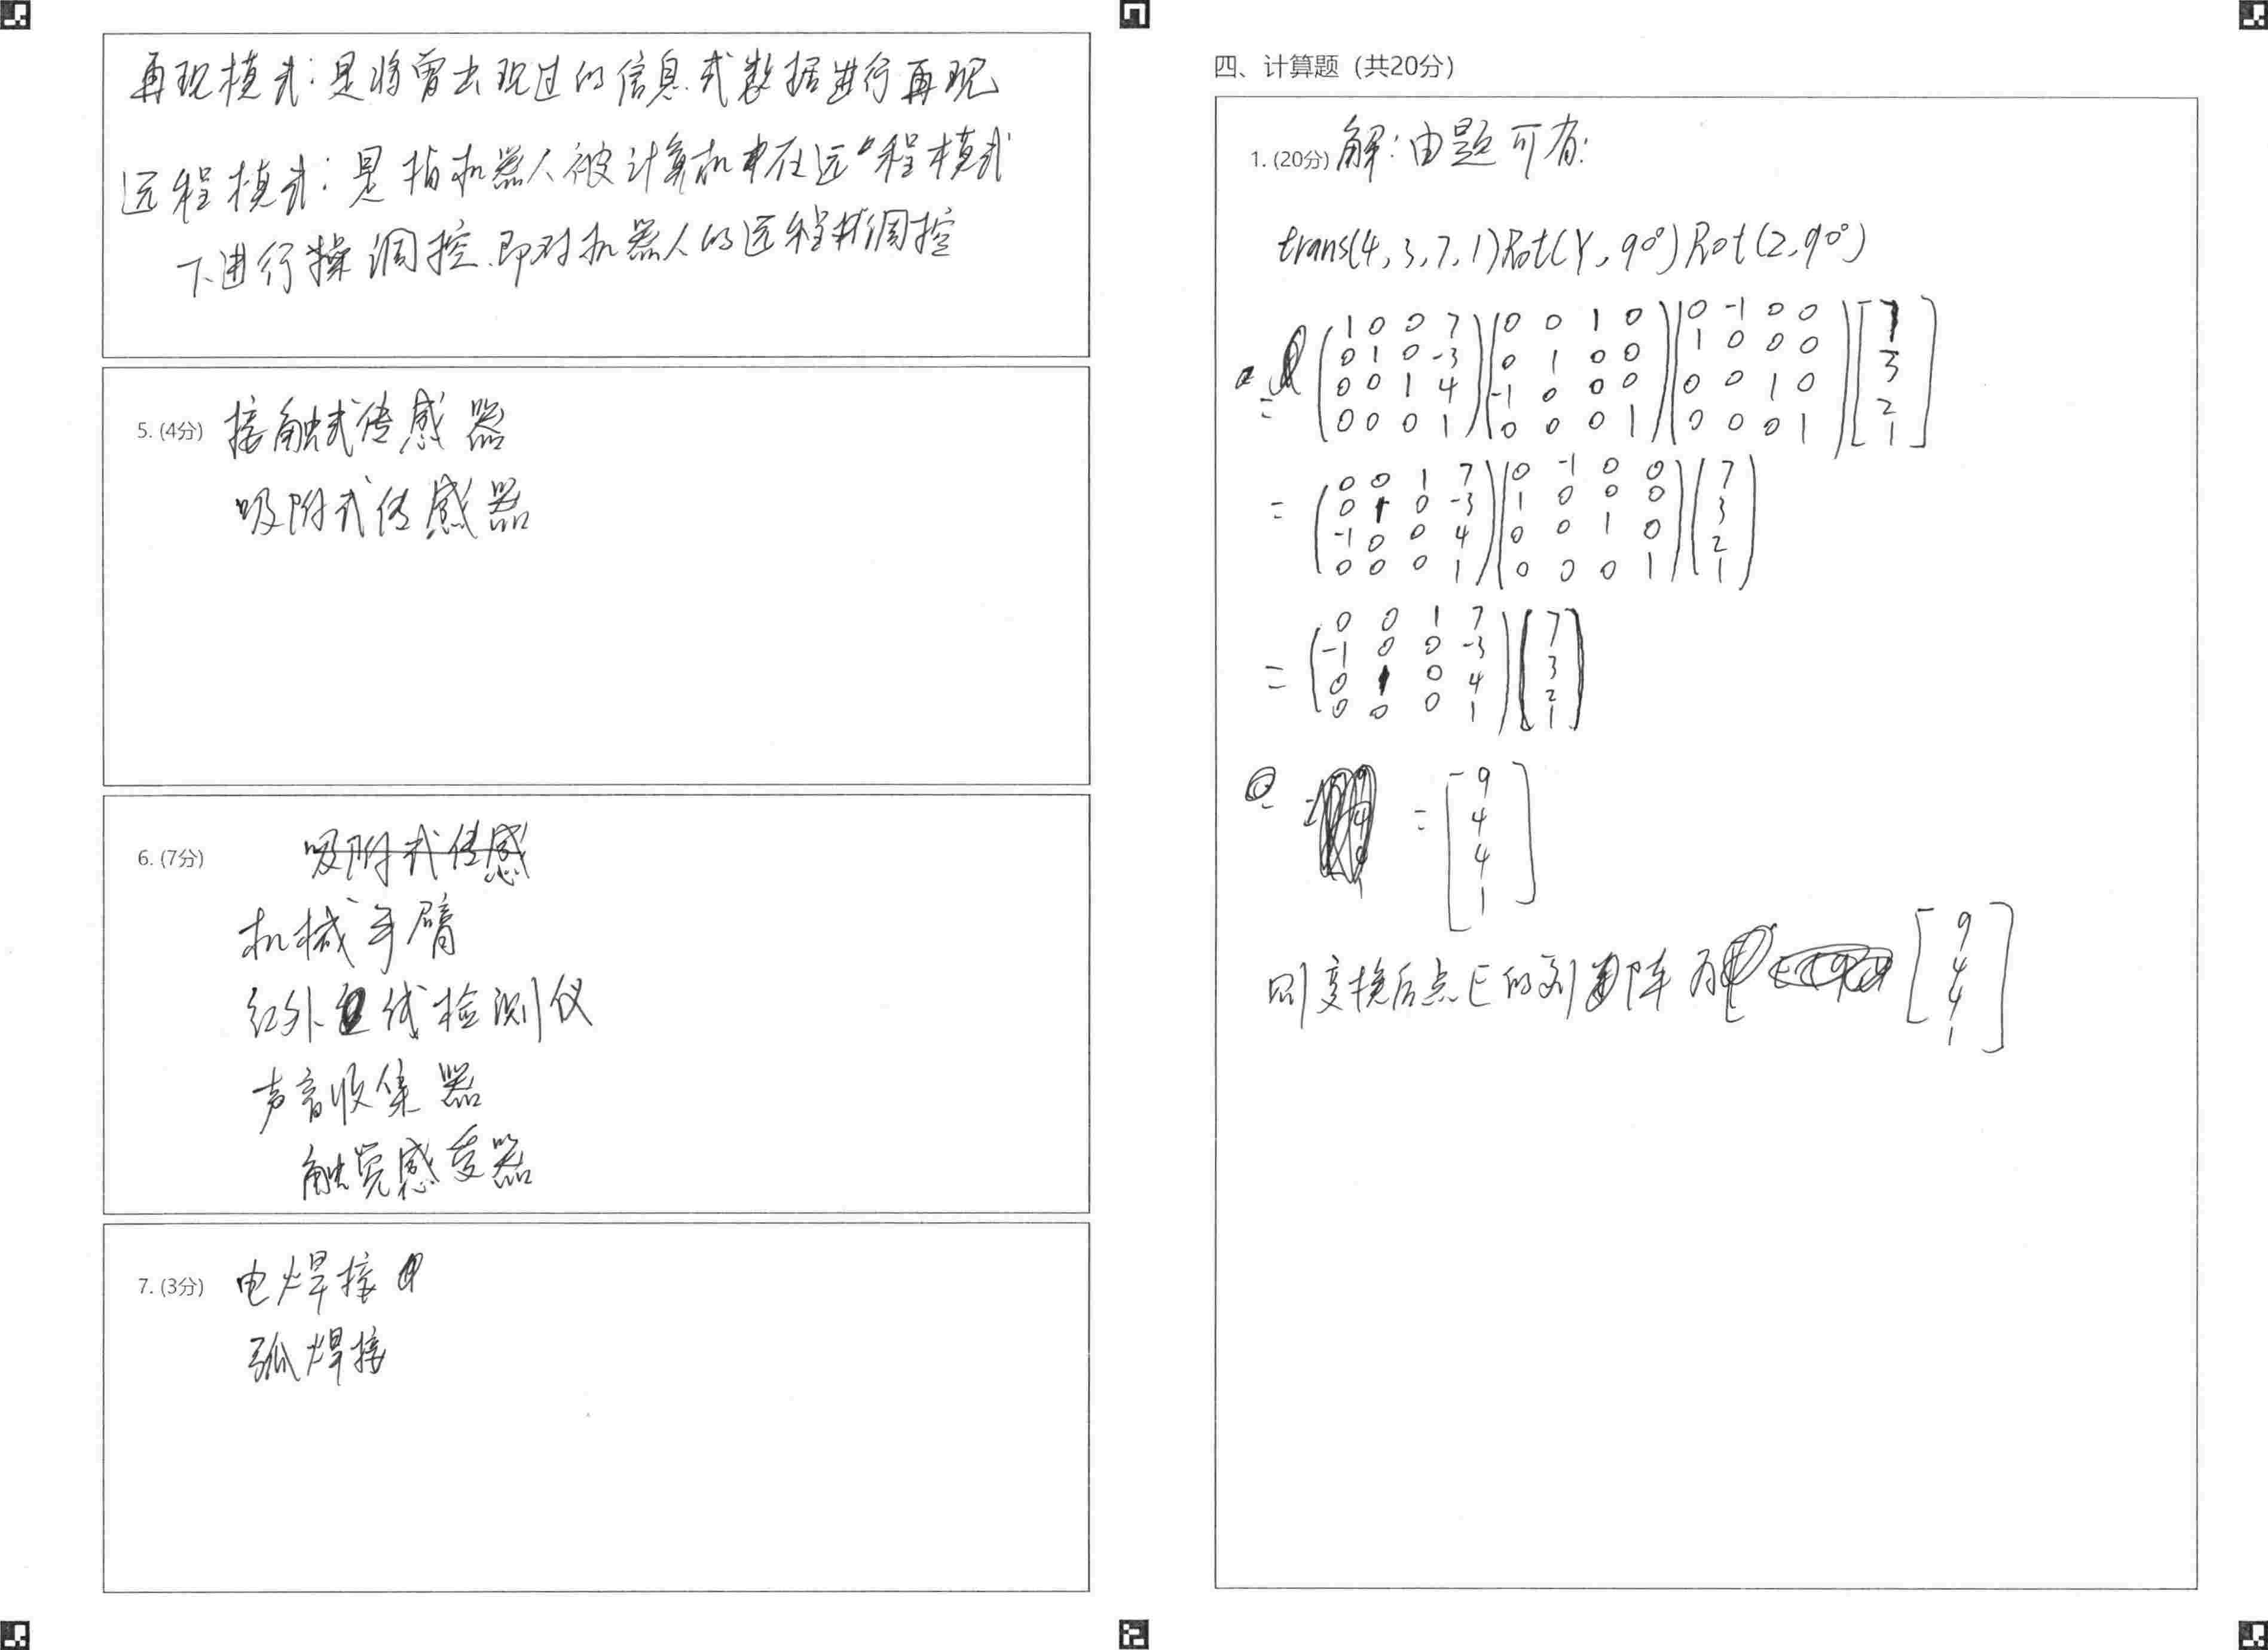 再现模式:是将曾出现过的信息或数据进行再现
远程模式:是指机器人被计算机在远程模式
下进行操调控.即对机器人的远程调控
5. (4分) 接触式传感器
吸附式传感器
6. (7分) 吸附式传感
机械手臂
红外线检测仪
声音收集器
触觉感受器
7. (3分) 电焊接
弧焊接
四、计算题(共20分)
1. (20分) 解:由题可有:
trans(4,3,7,1)Rot(Y,90°)Rot(Z,90°)
1 0 0 7 0 0 1 0 0 -1 0 0 7
0 1 0 -3 0 1 0 0 1 0 0 0 3
= 0 0 1 4 -1 0 0 0 0 0 1 0 2
0 0 0 1 0 0 0 1 0 0 0 1 1
0 0 1 7 0 -1 0 0 7
= 0 1 0 -3 1 0 0 0 3
-1 0 0 4 0 0 1 0 2
0 0 0 1 0 0 0 1 1
0 0 1 7 7
-1 0 0 -3 3
= 0 1 0 4 2
0 0 0 1 1
9
= 4
4
1
则变换后点E的列阵为
9
4
4
1